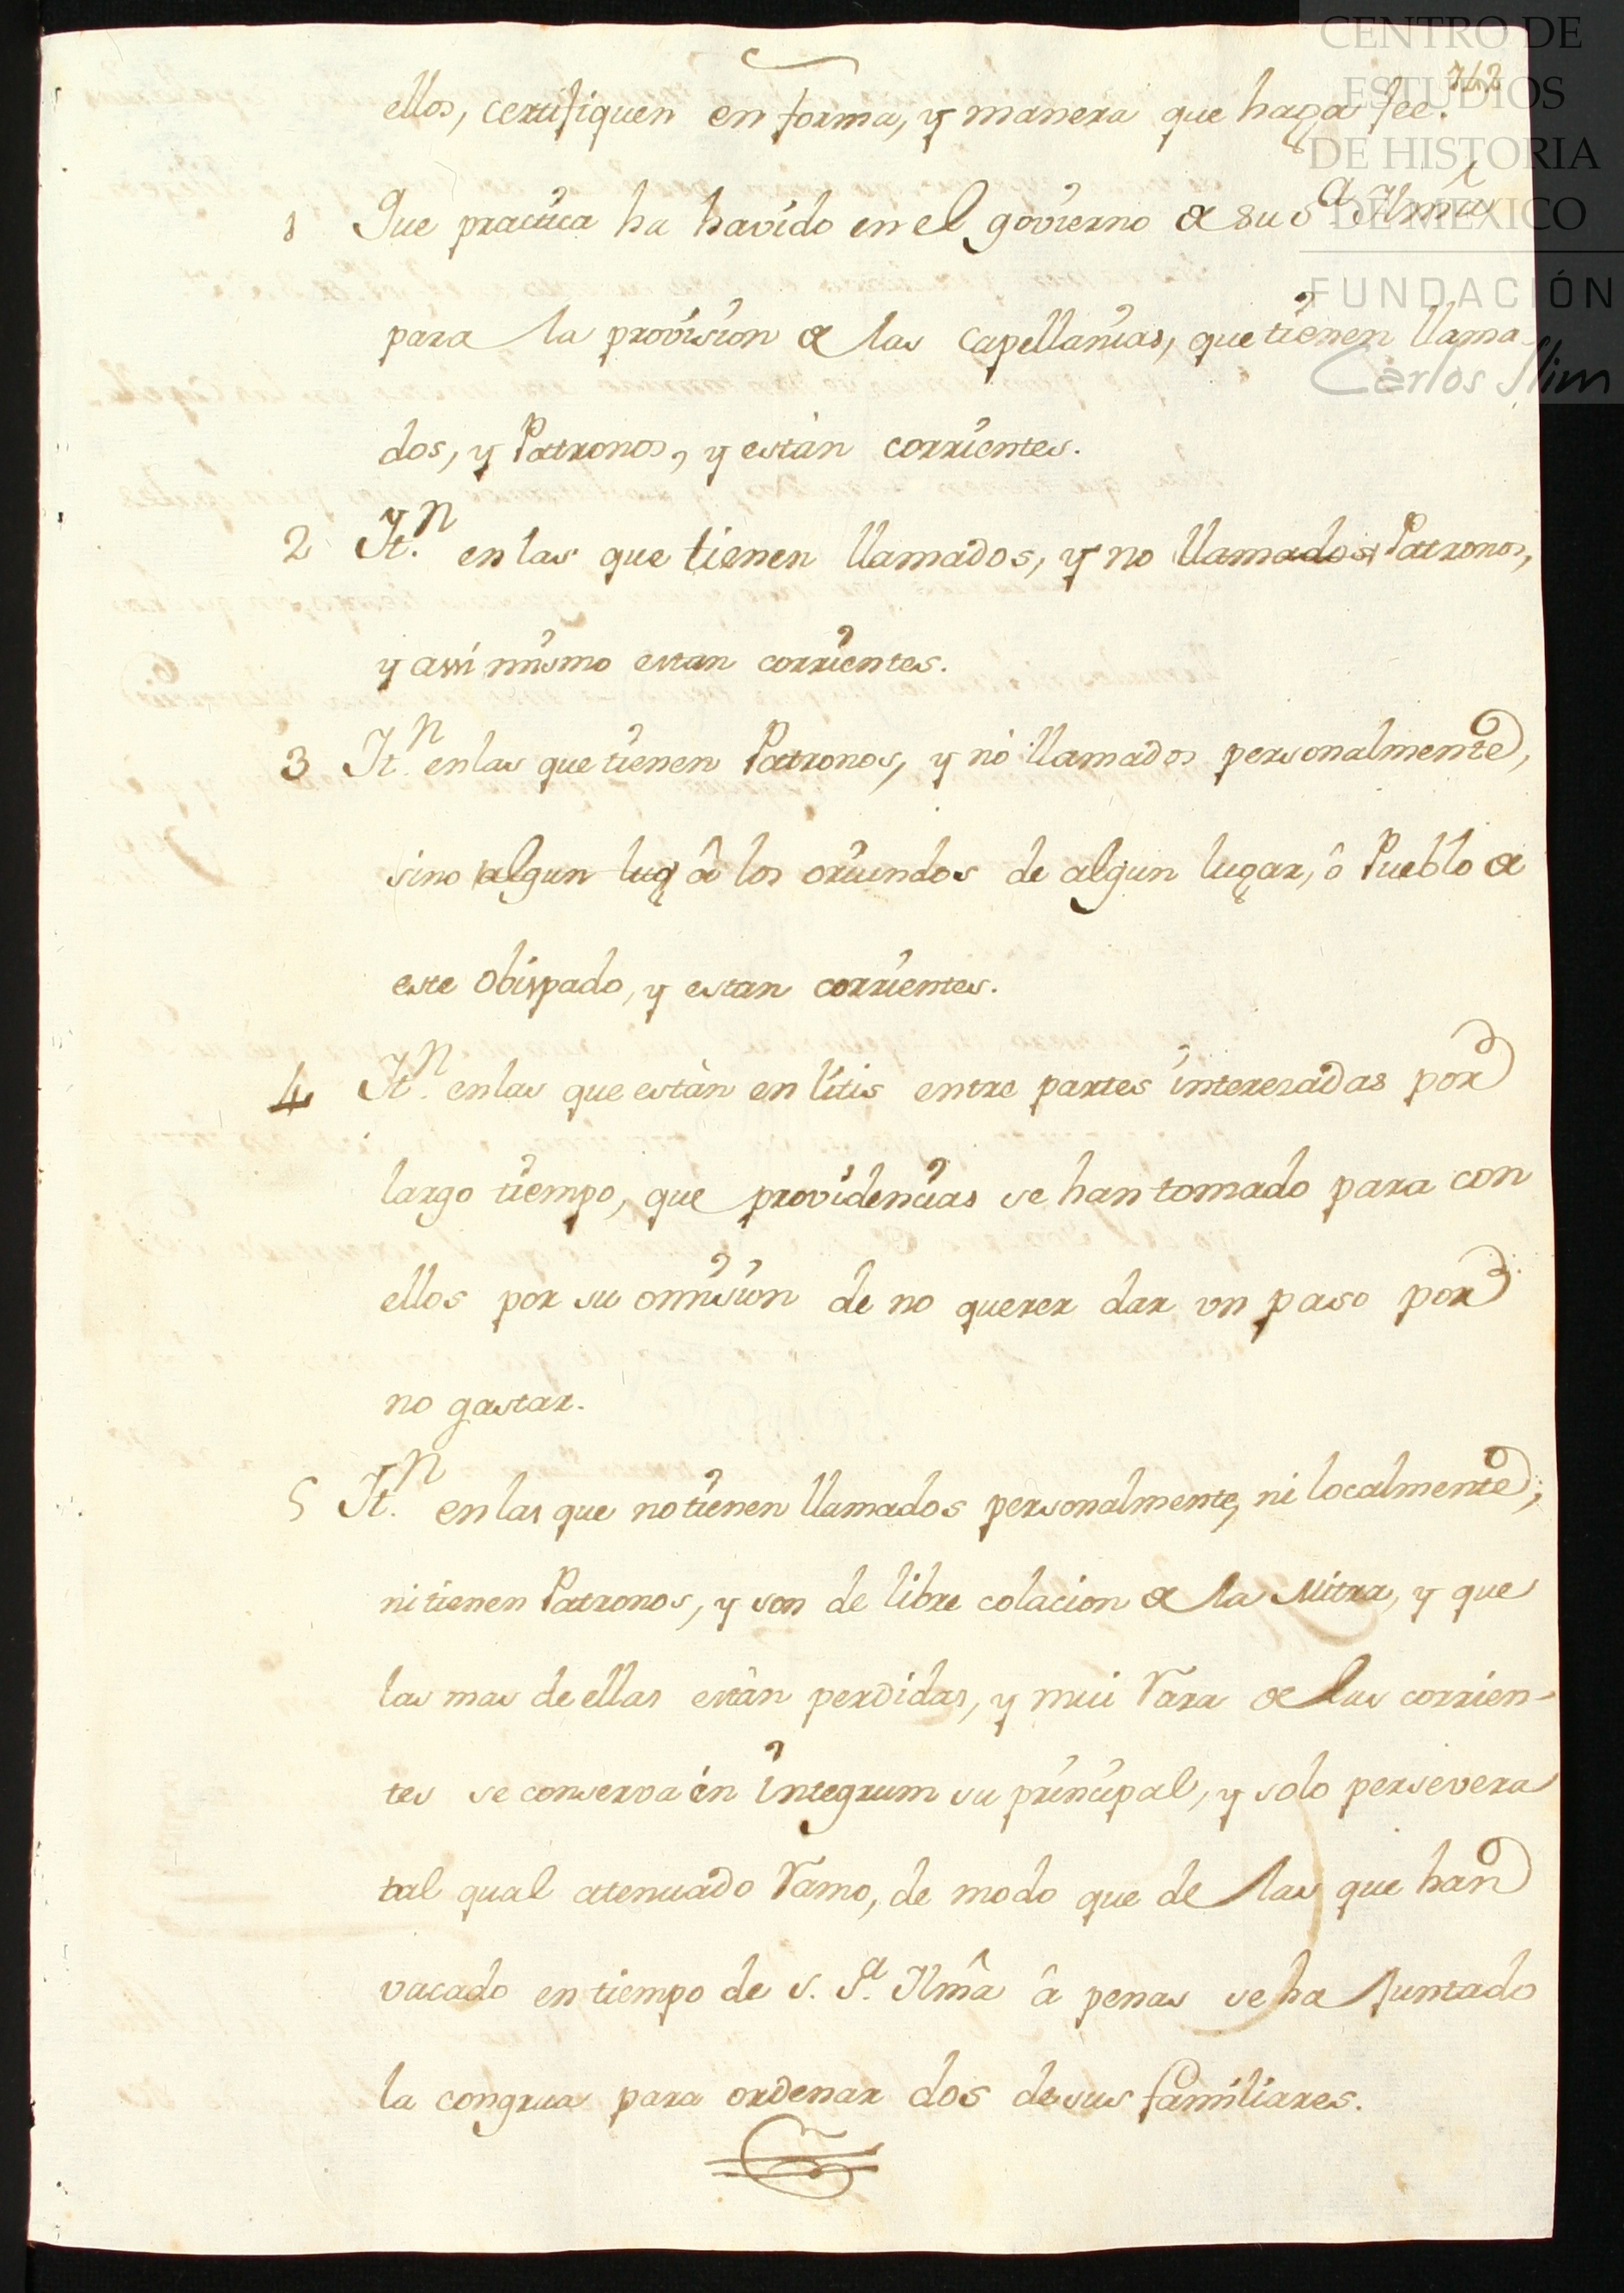 CENTRO DE
ESTUDIOS
DE HISTORIA
DE MÉXICO
FUNDACIÓN
Carlos Slim
ellos, certifiquen en forma, y manera que haga fee.
1 Que practica ha havido en el govierno de su S.ª Ilmã
para la provision de las capellanias, que tienen llama
dos, y Patronos, y estàn corrientes.
2 It.n en las que tienen llamados, y no llamados Patronos,
y assi mismo estan corrientes.
3 It.n en las que tienen Patronos, y nò llamados personalmente,
sino algun lug â los oriundos de algun lugar, ô Pueblo de
este Obispado, y estan corrientes.
4 It.n en las que estàn en litis entre partes interezadas por
largo tiempo, que providencias se han tomado para con
ellos por su omision de no querer dar un paso por
no gastar.
5 It.n en las que no tienen llamados personalmente, ni localmente,
ni tienen Patronos, y son de libre colacion de la Mitra, y que
las mas de ellas estàn perdidas, y mui rara de las corrien-
tes se conserva in integrum su principal, y solo persevera
tal qual atenuado ramo, de modo que de las que han
vacado en tiempo de S. S.ª Ilmâ â penas se ha juntado
la congrua para ordenar dos de sus familiares.